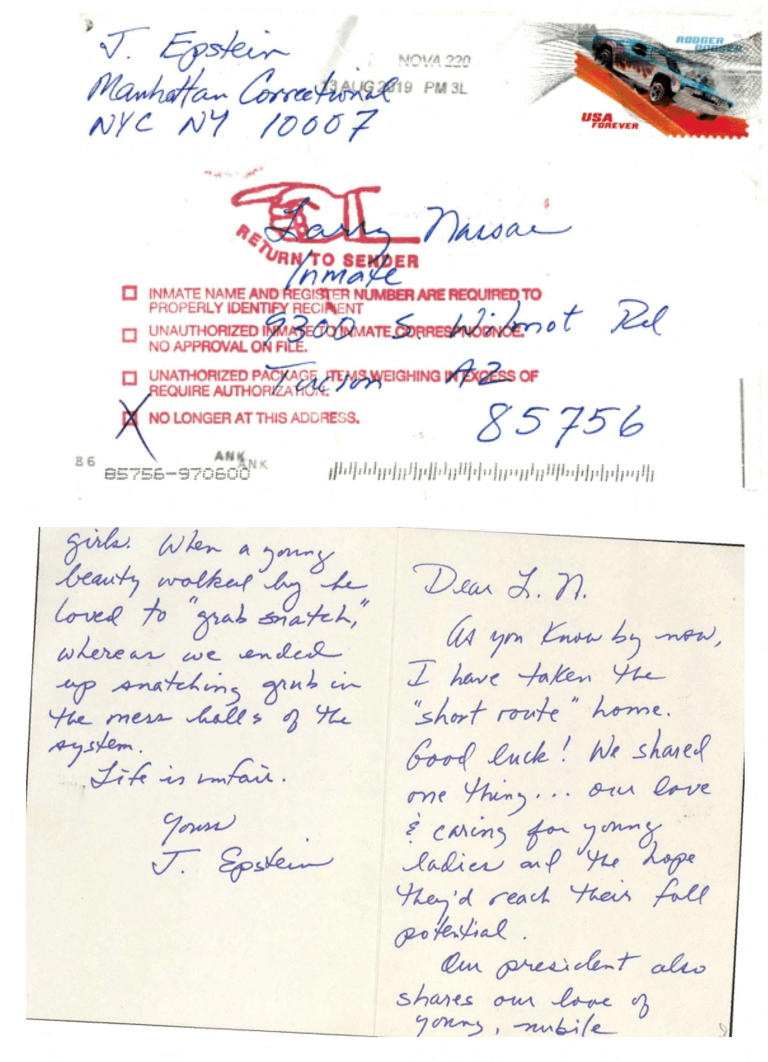 J. Epstein
Manhattan Correctional
NYC NY 10007
NOVA 220
13 AUG 2019 PM 3L
RODGER
DODGER
USA
FOREVER
Larry Nassar
Inmate
9300 S. Wilmot Rd
Tucson AZ
85756
RETURN TO SENDER
INMATE NAME AND REGISTER NUMBER ARE REQUIRED TO
PROPERLY IDENTIFY RECIPIENT
UNAUTHORIZED INMATE TO INMATE
NO APPROVAL ON FILE.
UNATHORIZED PACKAGE, ITEMS WEIGHING IN EXCESS OF
REQUIRE AUTHORIZATION.
X NO LONGER AT THIS ADDRESS.
86
ANK
ANK
85756-970600
Dear L. N.
As you know by now,
I have taken the
"short route" home.
Good luck! We shared
one thing... our love
& caring for young
ladies and the hope
they'd reach their full
potential.
Our president also
shares our love of
young, nubile
girls. When a young
beauty walked by he
loved to "grab snatch,"
whereas we ended
up snatching grub in
the mess halls of the
system.
Life is unfair.
Yours
J. Epstein